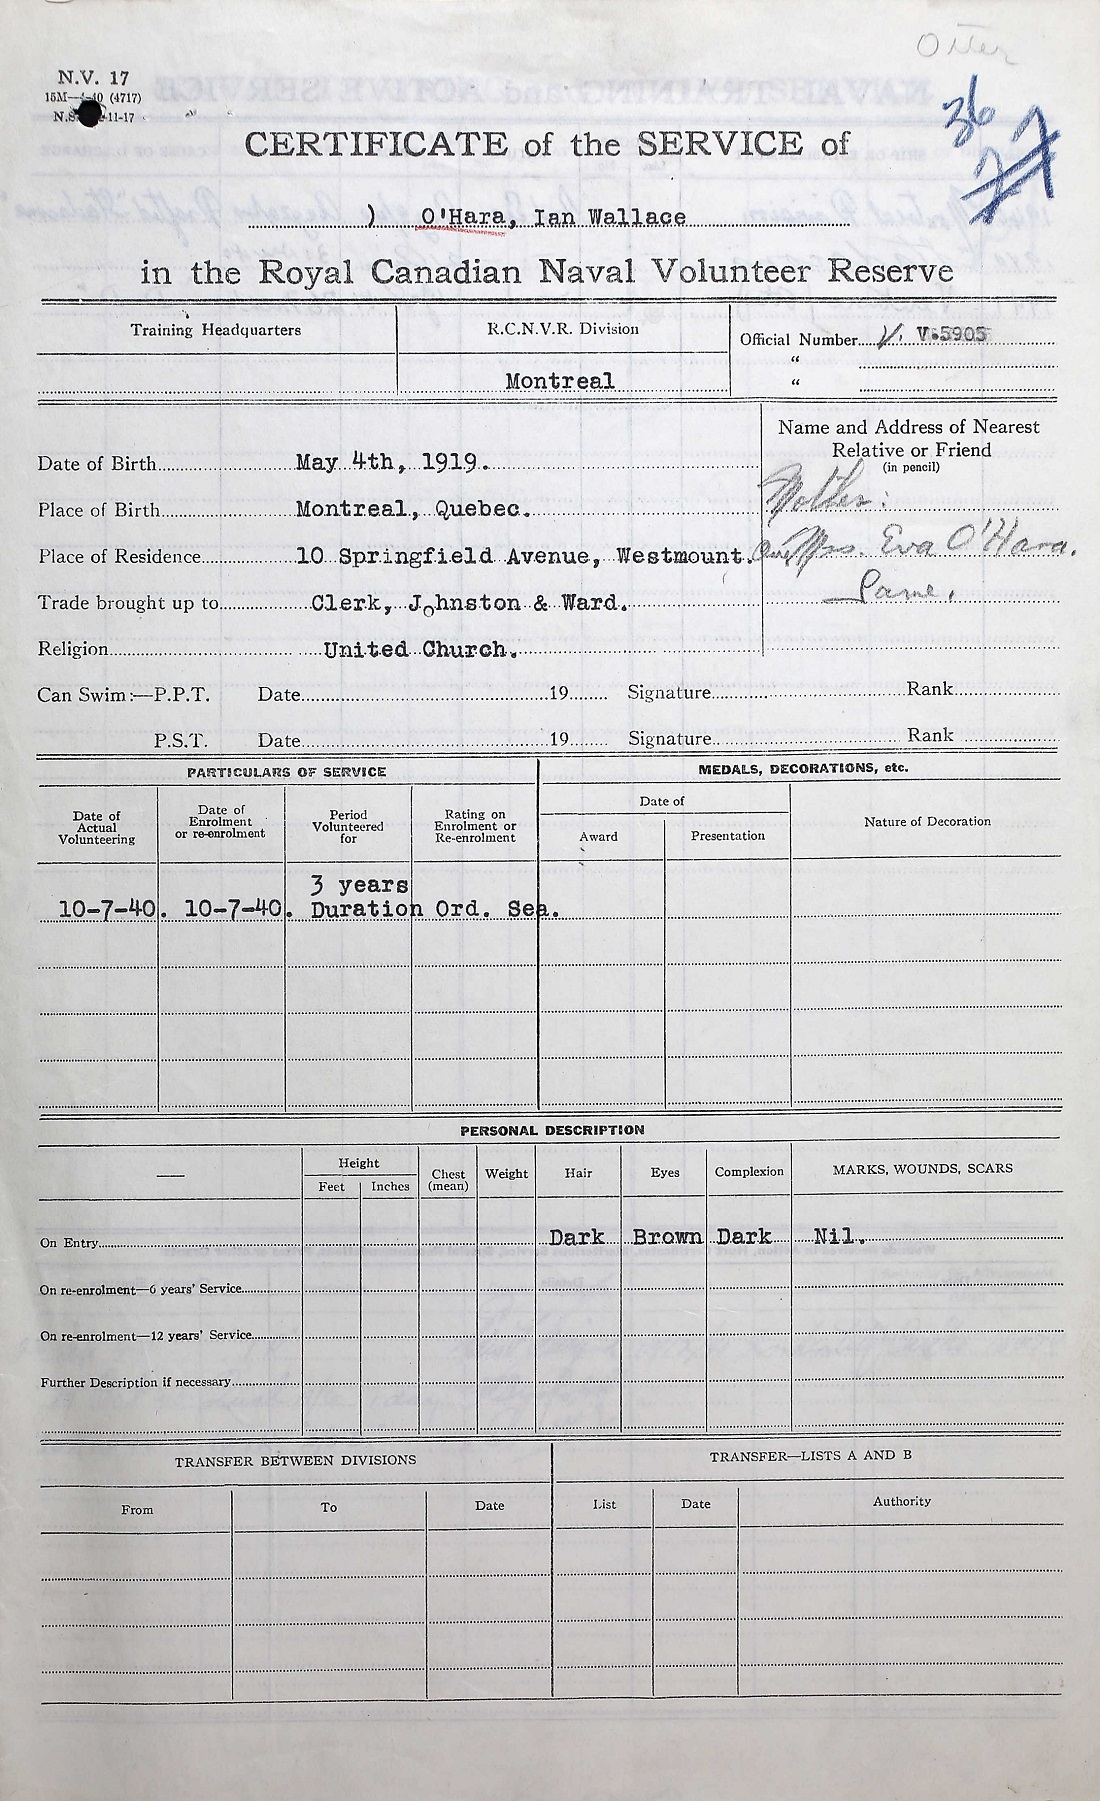 Otter
N.V. 17
15M—4-40 (4717)
N.S. 11-17
36
77
CERTIFICATE of the SERVICE of
) O'Hara, Ian Wallace
in the Royal Canadian Naval Volunteer Reserve
Training Headquarters
R.C.N.V.R. Division
Montreal
Official Number V. V.5905
"
"
Name and Address of Nearest
Relative or Friend
(in pencil)
Mother:
Mrs. Eva O'Hara.
Same.
Date of Birth May 4th, 1919.
Place of Birth Montreal, Quebec.
Place of Residence 10 Springfield Avenue, Westmount. Que.
Trade brought up to Clerk, Johnston & Ward.
Religion United Church.
Can Swim:—P.P.T. Date 19 Signature Rank
P.S.T. Date 19 Signature Rank
PARTICULARS OF SERVICE
MEDALS, DECORATIONS, etc.
Date of
Actual
Volunteering
Date of
Enrolment
or re-enrolment
Period
Volunteered
for
Rating on
Enrolment or
Re-enrolment
Date of
Award
Presentation
Nature of Decoration
3 years
10-7-40. 10-7-40. Duration Ord. Sea.
PERSONAL DESCRIPTION
—
Height
Feet Inches
Chest
(mean)
Weight
Hair
Eyes
Complexion
MARKS, WOUNDS, SCARS
On Entry Dark Brown Dark Nil.
On re-enrolment—6 years' Service
On re-enrolment—12 years' Service
Further Description if necessary
TRANSFER BETWEEN DIVISIONS
TRANSFER—LISTS A AND B
From To Date List Date Authority